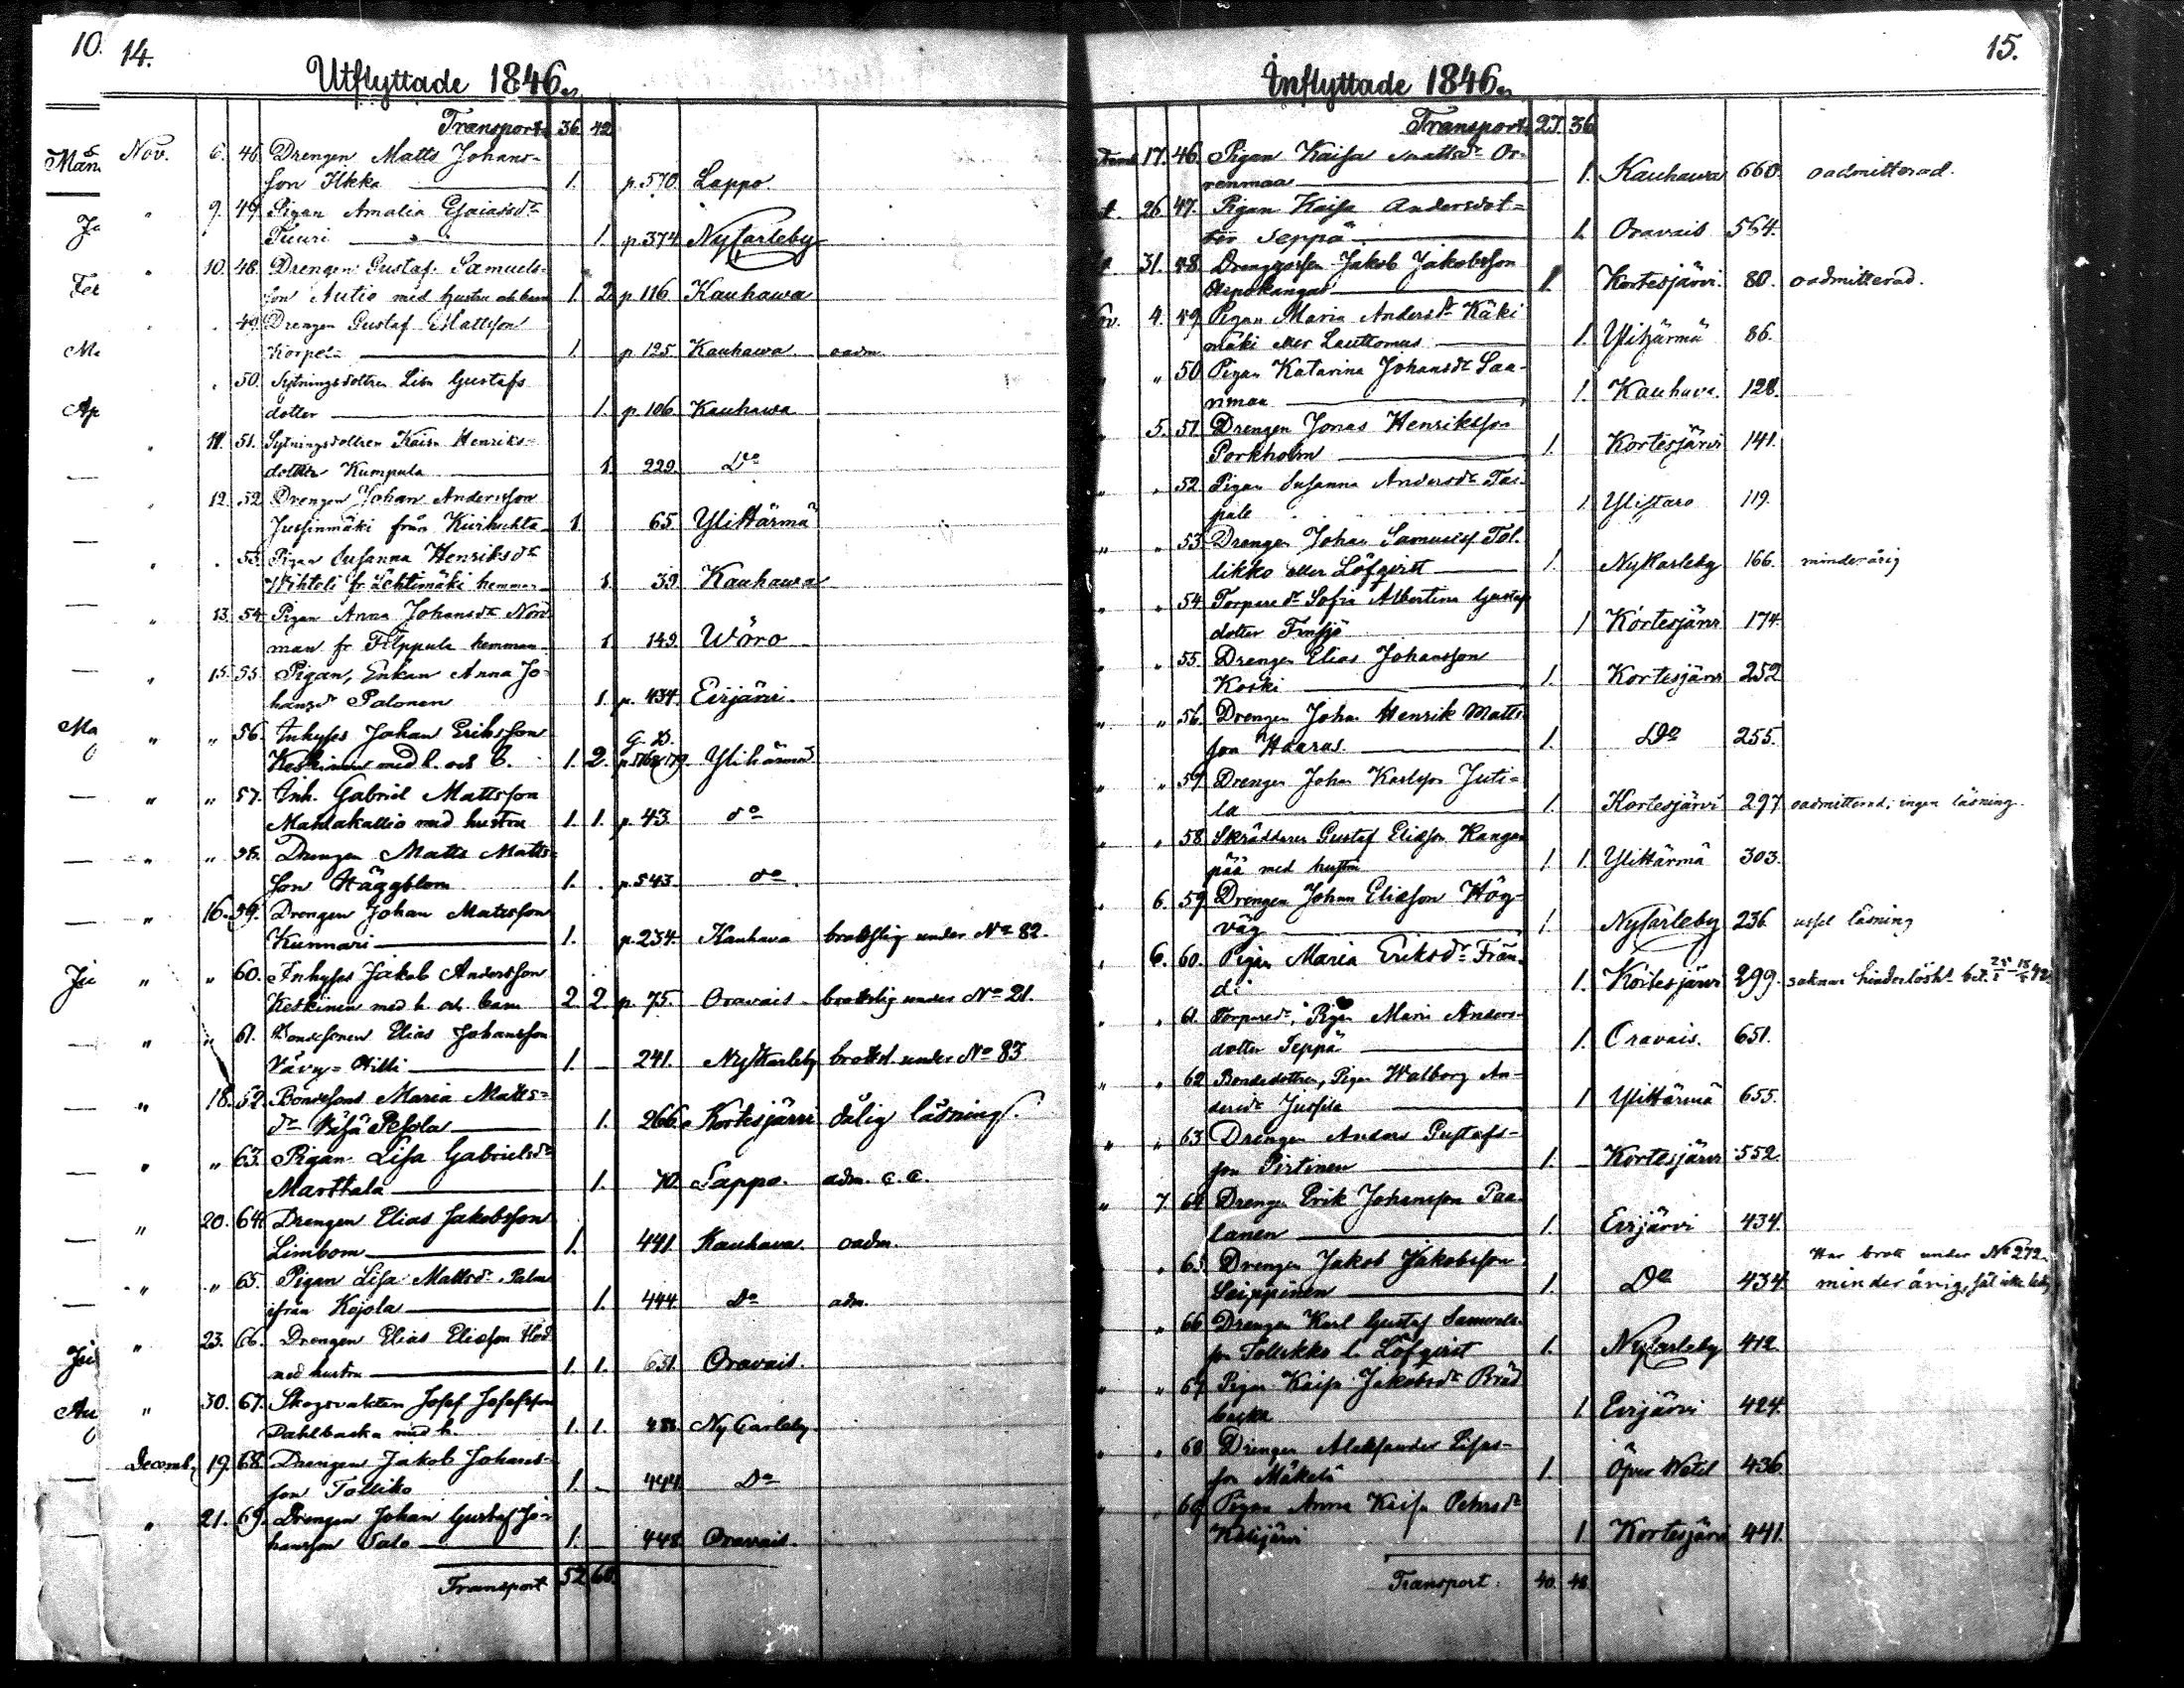 10.
14.
Utflyttade 1846.
Transport 36 42
Nov. 6. 46. Drengen Matts Johans-
son Ilkka 1. p. 570. Lappo
" 9. 47. Pigan Amalia Esaiasdr
Tuuri 1. p. 374 NyCarleby
" 10. 48. Drengen Gustaf Samuels-
son Autio med hustru och barn 1 2 p 116 Kauhawa
" " 49. Drengen Gustaf Mattsson
Korpela 1. p 125. Kauhawa oadm.
" 50. Sytningsdottren Lisa Gustafs
dotter 1. p 106. Kauhawa
" 11. 51. Sytningsdottren Kaisa Henriks-
dotter Kumpula 1. 229. Do
" 12. 52. Drengen Johan Andersson
Jussinmäki från Kuihuhta 1. 65 YliHärmä
" " 53. Pigan Susanna Henriksdr
Wihtoli fr Lehtimäki hemman 1. 39. Kauhawa
" 13. 54. Pigan Anna Johansdr Nord
man fr Filppula hemman 1 149. Wöro
" 15. 55. Pigan, Enkan Anna Jo-
hansdr Palonen 1. p. 434. Evijärvi.
" " 56. Inhyses Johan Eriksson
Keskinen med h. och b. 1. 2. Ylihärmä
" " 57. Inh. Gabriel Mattsson
Mahlakallio med hustru 1. 1. p. 43. do
" " 58. Drengen Matts Matts-
son Häggblom 1. p. 543. do
" 16. 59. Drengen Johan Matsson
Kunnari 1. p. 234. Kauhava brottslig under No 82.
" " 60. Inhyses Jakob Andersson
Keskinen med h. och barn 2 2. p. 75. Oravais brottslig under No 21.
" " 61. Bondesonen Elias Johansson
Vävy-Willi 1. 241. NyKarleby brottsl. under No 83.
" 18. 62. Maria Matts-
dr Wähä Pesola 1. 266. Kortesjärvi dålig läsning.
" " 63. Pigan Lisa Gabrielsdr
Marttala 1. 70. Lappo. adm. c. c.
" 20. 64. Drengen Elias Jakobsson
Limbom 1. 441 Kauhava. oadm.
" " 65. Pigan Lisa Mattsdr Palm
ifrån Kojola 1. 444 Do adm.
" 23. 66. Drengen Elias Eliasson
med hustru 1. 1. 631. Oravais.
" 30. 67. Skogsvakten Josef Josefsson
Dahlbacka med h. 1. 1. NyCarleby.
Decemb. 19. 68. Drengen Jakob Johans-
son Tollikko 1. 444 Do
" 21. 69. Drengen Johan Gustaf Jo-
hansson Salo 1. 448 Oravais.
Transport 52 60.
15.
Inflyttade 1846.
Transport 27. 36
17. 46. Pigan Kaisa Mattsdr Or-
renmaa 1. Kauhawa 660. oadmitterad.
26. 47. Pigan Kaisa Andersdot-
ter Seppä 1. Oravais 564.
31. 48. Jakob Jakobsson
1. Kortesjärvi. 80. oadmitterad.
4. 49. Pigan Maria Andersdr Käki
mäki eller Lauttomus 1. YliHärmä 86.
" 50 Pigan Katarina Johansdr Saa-
rimaa 1. Kauhava. 128.
5. 51. Drengen Jonas Henriksson
Porkholm 1. Kortesjärvi 141.
" 52 Pigan Susanna Andersdr Tai-
pale 1 Ylistaro 119.
" " 53 Drengen Johan Samuelss. Tol-
likko eller Löfqvist 1. NyKarleby 166. minderårig
" " 54 Torparedr Sofia Albertina Gustaf
dotter 1 Kortesjärvi 174
" " 55 Drengen Elias Johansson
Koski 1. Kortesjärvi 252
" " 56. Drengen Johan Henrik Matts-
son Haarus 1. Do 255.
" " 57 Drengen Johan Karlsson Juti-
la 1. Kortesjärvi 297 oadmitterad; ingen läsning.
" 58 Skräddaren Gustaf Eliasson Kangas
pää med hustru 1 1. YliHärmä 303.
6. 59 Drengen Johan Eliasson Hög-
väg 1. NyCarleby 236 ussel läsning
6. 60. Pigan Maria Eriksdr Frän-
di 1. Kortesjärvi 299. saknar hinderlösht. bet.
" 61. Torparedr, Pigan Maria Anders-
dotter Seppä 1. Oravais. 651.
" " 62 Bondedottren, Pigan Walborg An-
dersdr Jussila 1 YliHärmä 655.
" " 63 Drengen Anders Gustafs-
son Pirtinen 1. Kortesjärvi 552.
" 7. 64 Drengen Erik Johansson Paa-
lanen 1. Evijärvi 434.
" 65 Drengen Jakob Jakobsson
Seippinen 1. Do 434. Har brott under No 272.
minderårig,
" 66 Drengen Karl Gustaf Samuels-
son Tollikko l. Löfqvist 1. NyCarleby 412.
" " 67 Pigan Kaisa Jakobsdr Bräd
backa 1. Evijärvi 424.
" " 68 Drengen Aleksander
son Mäkelä 1. Öfver Wetil 436
" " 69 Pigan Anna Kaisa Pehrsdr
1. Kortesjärvi 441.
Transport. 40. 48.